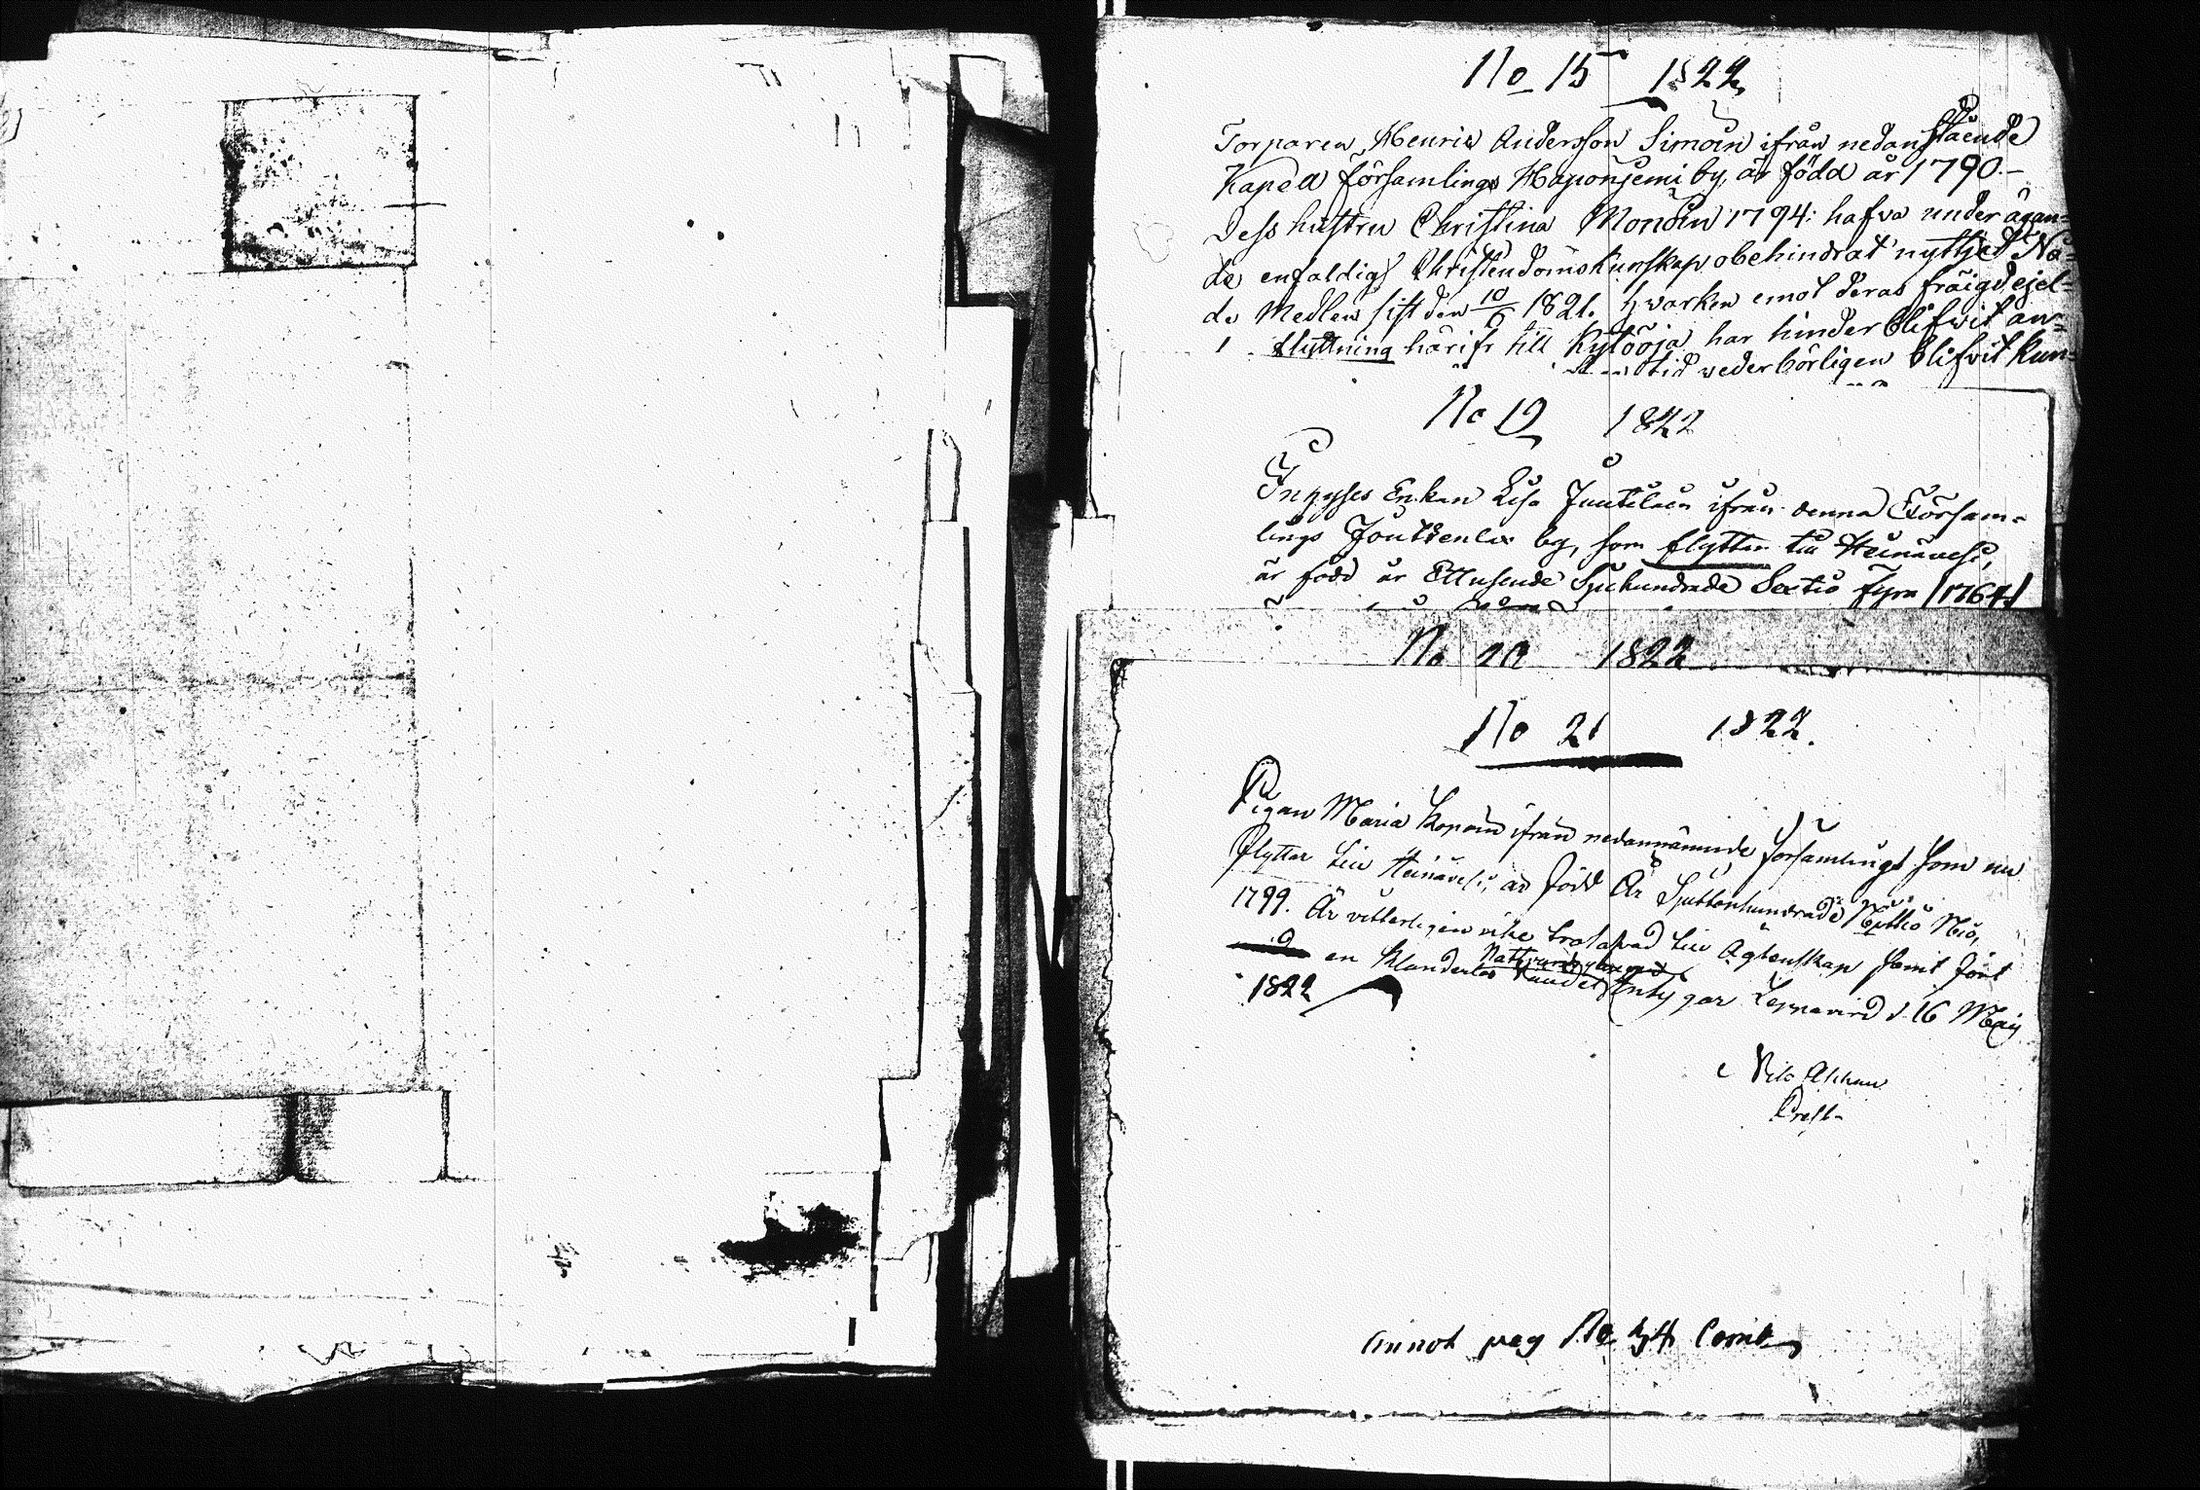 No 15 1822
Torparen Henric Andersson Simoin ifrån nedanstående
Kapell församlings Haponjemi by, är född år 1790.-
Dess hustru Christina Monoin 1794: hafva under ägan=
de enfaldig Christendomskunskap obehindrat nyttjet Nå=
de Medlen sist den 10/6 1821. Hvarken emot deras fräigd ejel=
flyttning härifr till Kylöoja har hinder blifwit an=
tid wederbörligen blifwit kun=
No 19 1822
Inhyses Enkan Lisa Juutilain ifrån denna Försam=
lings Joutsenlax by, som flyttar till Heinävesi,
är född år Ettusende Sjuhundrade Sextio fyra /1764/
No 20 1822
No 21 1822.
Pigan Maria Koponen ifrån nedannämnde församlingt som nu
flyttar till Heinävesi, är född År Sjuttonhundrade Nittio Nio,
1799. Är vitterligen icke trolofvad till Ägtenskap samt fört
en Klanderlös Vandel, Intygar Leppävird d. 16 Maij
1822
Nils Aschan
Præst-
Annot pag No 34 Comt